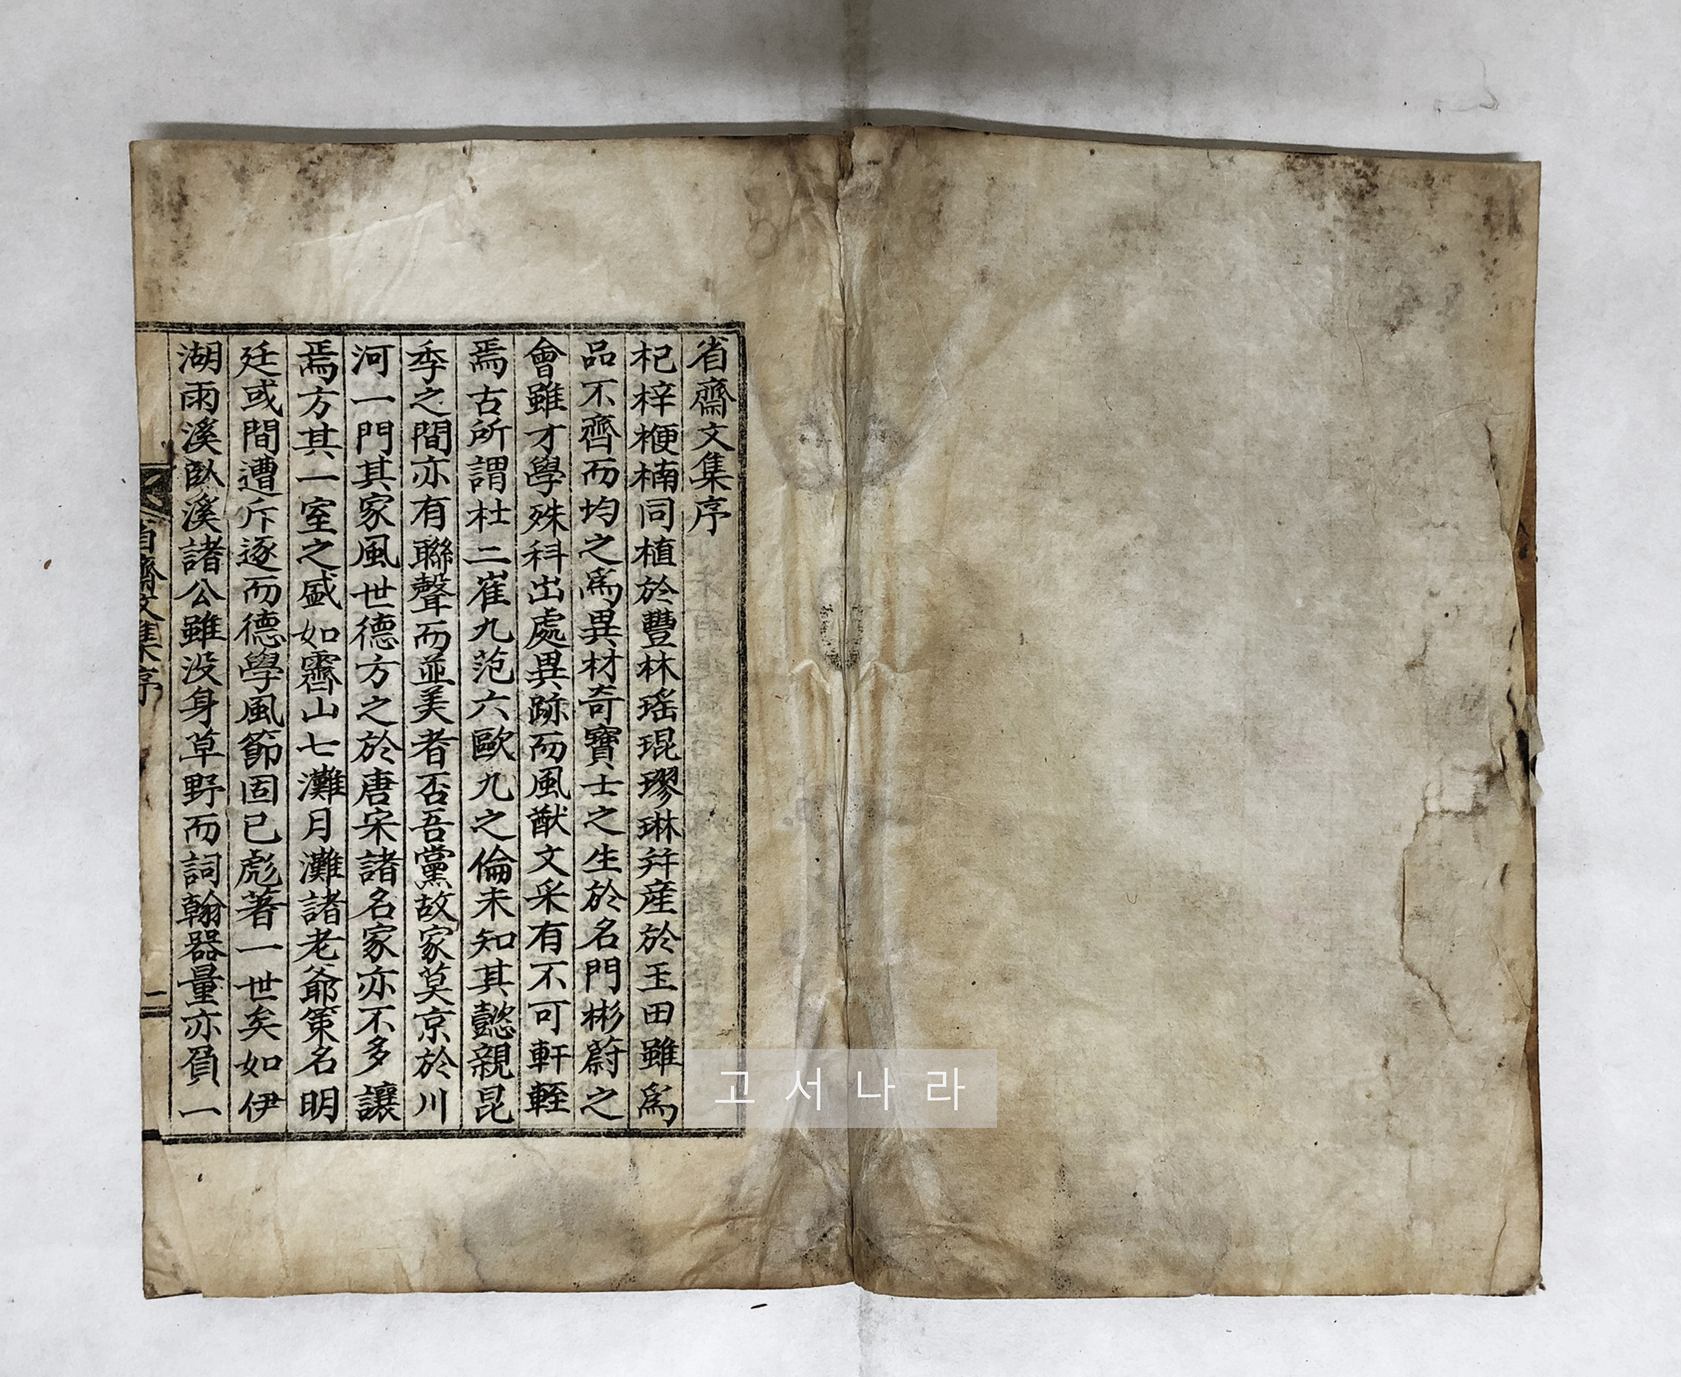 省齋文集序
杞梓楩楠同植於豐林瑤琨璆琳幷産於玉田雖爲
品不齊而均之爲異材奇寶士之生於名門彬蔚之
會雖才學殊科出處異跡而風猷文采有不可軒輊
焉古所謂杜二崔九范六歐九之倫未知其懿親昆
季之間亦有聯聲而並美者否吾黨故家莫京於川
河一門其家風世德方之於唐宋諸名家亦不多讓
焉方其一室之盛如霽山七灘月灘諸老爺策名明
廷或間遭斥逐而德學風節固已彪著一世矣如伊
湖雨溪臥溪諸公雖没身草野而詞翰器量亦負一
省齋文集序
一
고서나라